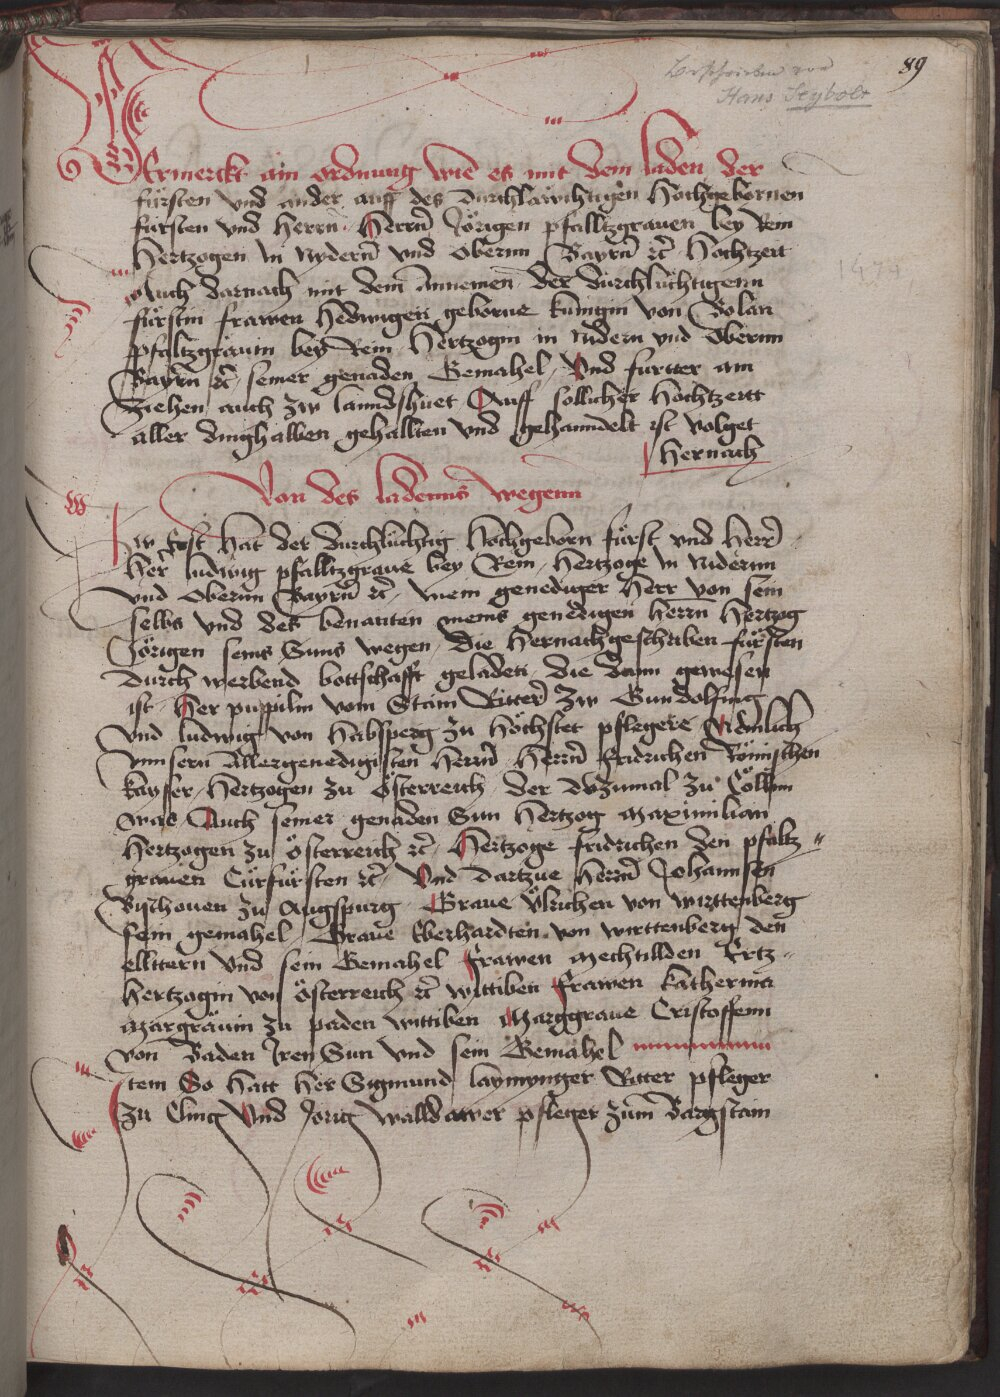 89
Beschrieben von
Hans Seybolt
Vermerckt ain ordnung wie es mit dem laden der
fürsten vnd ander auff des durchlawchtigen hochgebornen
fürsten vnd Herrn Herrn Jörigen pfalltzgrauen bey Rein
Hertzogen In Nydern vnd Obernn Bayrn etc Hochtzeit
Auch darnach mit dem Annemen der durchluchtigenn
fürstin frawen Hedwigen geborne kunigin von Bolan
pfaltzgräuin bey Rein Hertzogin in nidern vnd Obernn
Bayrn etc seiner genaden Gemahel Vnd furtter am
ziehen auch zw lanndshuet Auff sollicher Hochtzeitt
aller dinghalben gehallten vnd gehanndelt ist volget
Hernach
1474
Von des ladenns wegenn
Zw Erst hat der durchluchtig Hochgeborn fürst vnd Herr
Her ludwig pfalltzgraue bey Rein Hertzoge In Nidernn
vnd Obernn Bayrn etc mein genediger Herr von sein
selbs vnd des benanten meins genedigen Herrn Hertzog
Jörigen seins Suns wegen die Hernachgeschriben fürsten
durch werbend bottschafft geladen die dann gewesen
ist Her puppilin vom Stain Ritter zw Gundolfing
vnd ludwig von Habsperg zu Höchstet pflegere Nemlich
vnnsern Allergenedigisten Herrn Herrn fridrichen Römischen
kayser Hertzogen zu Österreich der dozumal zu Cölln
was Auch seiner genaden Sun Hertzog Maximilian
Hertzogen zu Österreich etc Hertzoge fridrichen den pfaltz
grauen Cürfürsten etc Vnd dartzue Herrn Johannsen
Bischouen zu Augspurg Graue Vlrichen von wirttenberg
sein gemahel Graue Eberhardten von wirttenberg den
ellttern Vnd sein Gemahel frawen Mechtillden Ertz
Hertzogin von Österreich etc wittiben frawen Katherina
Margräuin zu paden wittiben Marggraue Cristoffenn
von Baden Iren Sun vnd sein Gemahel
Item So hatt Her Sigmund laymynger Ritter pfleger
zu Cling Vnd Jorig walldawer pfleger zum Bargstain